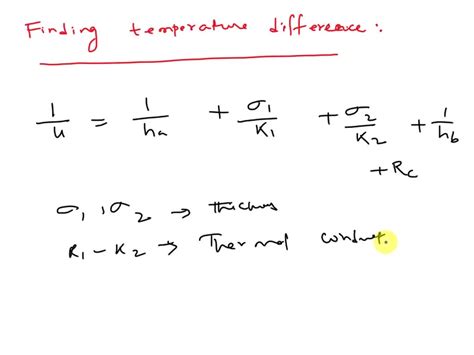 Finding temperature difference:
1/u = 1/ha + σ1/K1 + σ2/K2 + 1/hb
+ Rc
σ1, σ2 → thicknes
K1 - K2 → Thermal conduct.